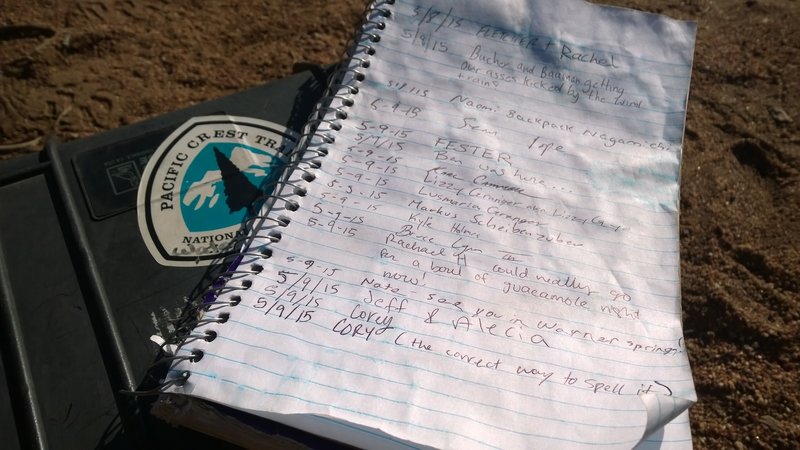 PACIFIC CREST TRA
NATIONAL
5/8/15 FLETCHER + Rachel
5/9/15 Bucher and Baaman getting
our asses kicked by the wind
train?
5-9-15 Naomi Backpack Nagamichi
5-9-15 Sean Pope
5-9-15 FESTER
5/9/15 Ben was here...
5-9-15
5-9-15 Lizzy Ceranger aka Lizzy
5-9-15 Lusmaria Ceranger
5-9-15 Markus Scheibenzuber
5-9-15 Kyle Holm
5-9-15 Bryce Lynn III
Rachael H could really go
for a bowl of guacamole right
now!
5-9-15 Nate see you in Warner springs!
5/9/15 Jeff & Alecia
5/9/15 Corey
5/9/15 CORY (the correct way to spell it)